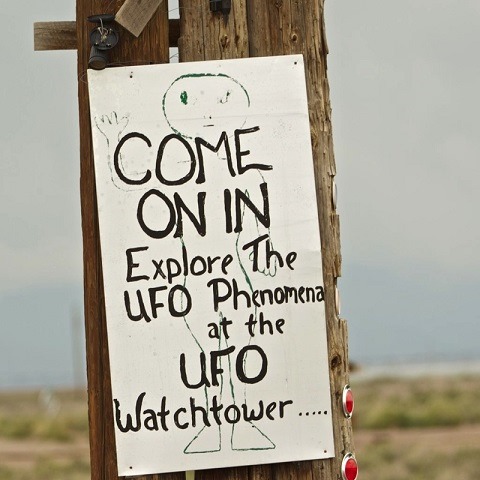 COME
ON IN
Explore The
UFO Phenomena
at the
UFO
Watchtower .....